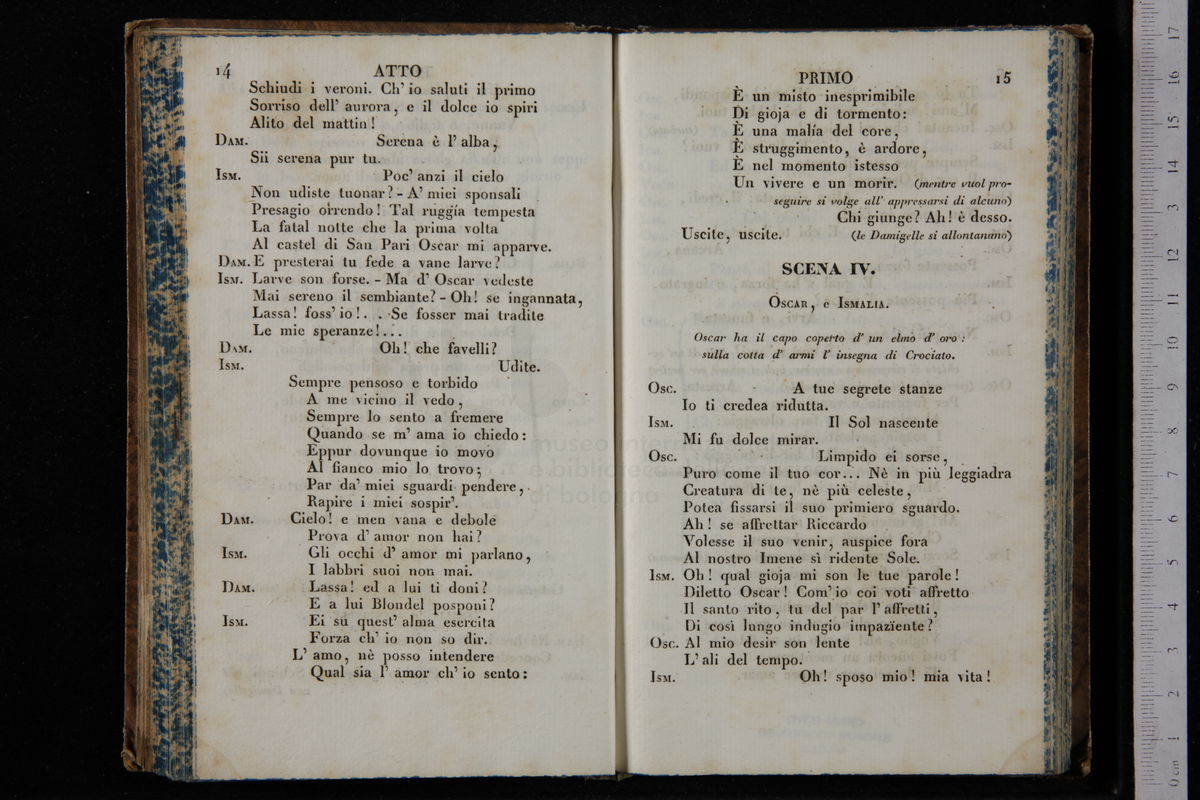 14 ATTO
Schiudi i veroni. Ch' io saluti il primo
Sorriso dell' aurora, e il dolce io spiri
Alito del mattin!
DAM. Serena è l' alba,
Sii serena pur tu.
ISM. Poc' anzi il cielo
Non udiste tuonar? - A' miei sponsali
Presagio orrendo! Tal ruggìa tempesta
La fatal notte che la prima volta
Al castel di San Pari Oscar mi apparve.
DAM. E presterai tu fede a vane larve?
ISM. Larve son forse. - Ma d' Oscar vedeste
Mai sereno il sembiante? - Oh! se ingannata,
Lassa! foss' io!. . . Se fosser mai tradite
Le mie speranze!...
DAM. Oh! che favelli?
ISM. Udite.
Sempre pensoso e torbido
A me vicino il vedo,
Sempre lo sento a fremere
Quando se m' ama io chiedo:
Eppur dovunque io movo
Al fianco mio lo trovo;
Par da' miei sguardi pendere,
Rapire i miei sospir'.
DAM. Cielo! e men vana e debole
Prova d' amor non hai?
ISM. Gli occhi d' amor mi parlano,
I labbri suoi non mai.
DAM. Lassa! ed a lui ti doni?
E a lui Blondel posponi?
ISM. Ei su quest' alma esercita
Forza ch' io non so dir.
L' amo, nè posso intendere
Qual sia l' amor ch' io sento:
PRIMO 15
È un misto inesprimibile
Di gioja e di tormento:
È una malía del core,
È struggimento, è ardore,
È nel momento istesso
Un vivere e un morir. (mentre vuol pro-
seguire si volge all' appressarsi di alcuno)
Chi giunge? Ah! è desso.
Uscite, uscite. (le Damigelle si allontanano)
SCENA IV.
OSCAR, e ISMALIA.
Oscar ha il capo coperto d' un elmo d' oro:
sulla cotta d' armi l' insegna di Crociato.
OSC. A tue segrete stanze
Io ti credea ridutta.
ISM. Il Sol nascente
Mi fu dolce mirar.
OSC. Limpido ei sorse,
Puro come il tuo cor... Nè in più leggiadra
Creatura di te, nè più celeste,
Potea fissarsi il suo primiero sguardo.
Ah! se affrettar Riccardo
Volesse il suo venir, auspice fora
Al nostro Imene sì ridente Sole.
ISM. Oh! qual gioja mi son le tue parole!
Diletto Oscar! Com' io coi voti affretto
Il santo rito, tu del par l' affretti,
Di così lungo indugio impazïente?
OSC. Al mio desir son lente
L' ali del tempo.
ISM. Oh! sposo mio! mia vita!
museo inter
e biblioteca
di bologna
0 cm 1 2 3 4 5 6 7 8 9 10 11 12 13 14 15 16 17